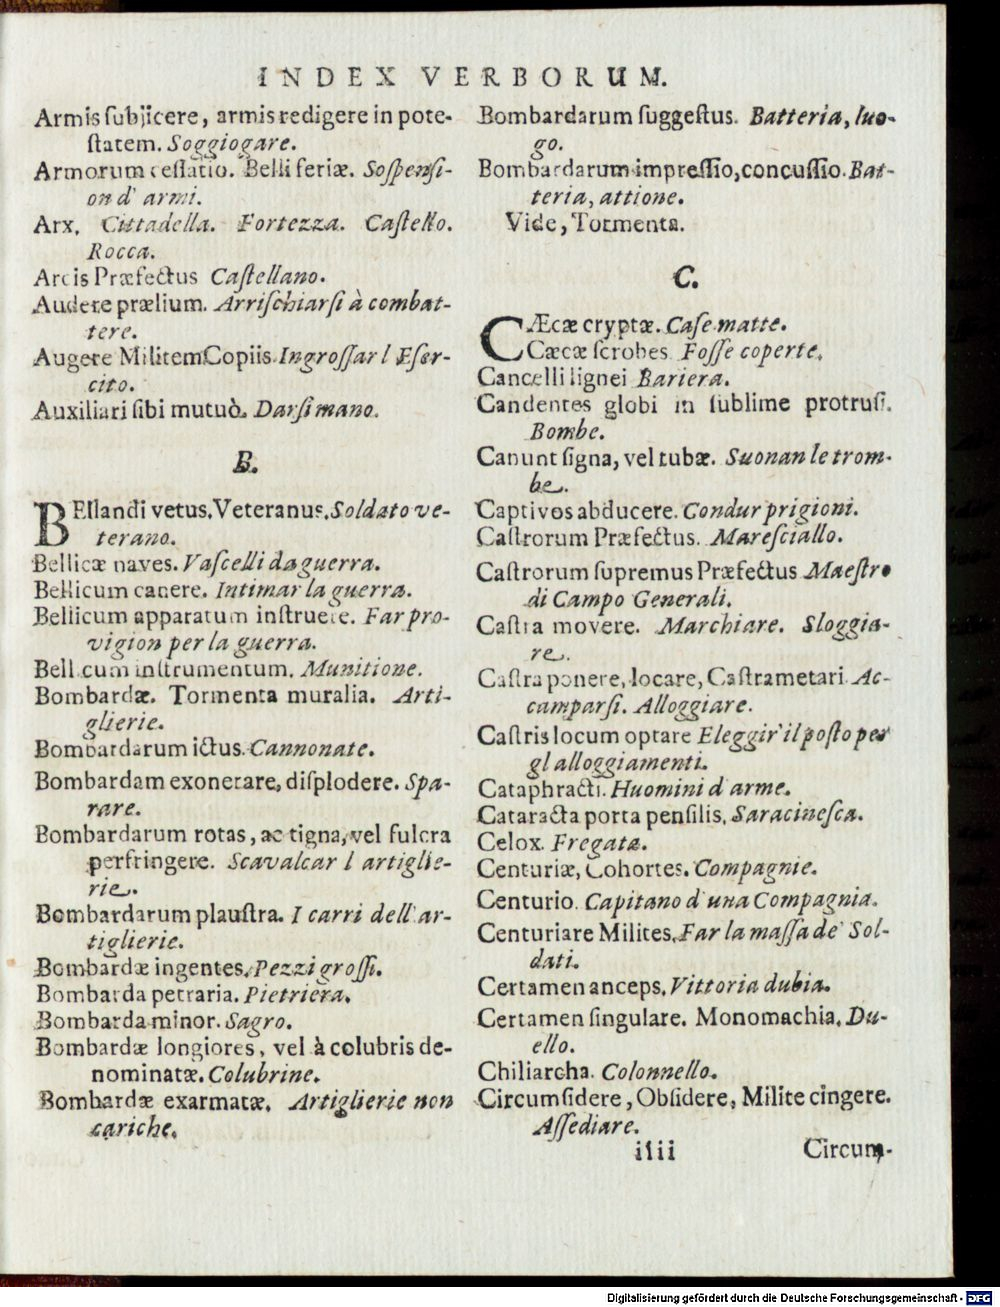 INDEX VERBORUM.
Armis ſubjicere, armis redigere in pote-
ſtatem. Soggiogare.
Armorum ceſſatio. Belli feriæ. Soſpenſi-
on d' armi.
Arx. Cittadella. Fortezza. Caſtello.
Rocca.
Arcis Præfectus Caſtellano.
Audere prælium. Arriſchiarſi à combat-
tere.
Augere Militem Copiis. Ingroſſar l Eſer-
cito.
Auxiliari ſibi mutuò. Darſi mano.
B.
BEllandi vetus, Veteranus, Soldato ve-
terano.
Bellicæ naves. Vaſcelli da guerra.
Bellicum canere. Intimar la guerra.
Bellicum apparatum inſtruere. Far pro-
vigion per la guerra.
Bell cum inſtrumentum. Munitione.
Bombardæ. Tormenta muralia. Arti-
glierie.
Bombardarum ictus. Cannonate.
Bombardam exonerare, diſplodere. Spa-
rare.
Bombardarum rotas, ac tigna, vel fulcra
perfringere. Scavalcar l artiglie-
rie.
Bombardarum plauſtra. I carri dell' ar-
tiglierie.
Bombardæ ingentes. Pezzi groſſi.
Bombarda petraria. Pietriera.
Bombarda minor. Sagro.
Bombardæ longiores, vel à colubris de-
nominatæ. Colubrine.
Bombardæ exarmatæ. Artiglierie non
cariche.
Bombardarum ſuggeſtus. Batteria, luo-
go.
Bombardarum impreſſio, concuſſio. Bat-
teria, attione.
Vide, Tormenta.
C.
CÆcæ cryptæ. Caſe matte.
Cæcæ ſcrobes. Foſſe coperte.
Cancelli lignei Bariera.
Candentes globi in ſublime protruſi.
Bombe.
Canunt ſigna, vel tubæ. Suonan le trom-
be.
Captivos abducere. Condur prigioni.
Caſtrorum Præfectus. Mareſciallo.
Caſtrorum ſupremus Præfectus Maeſtro
di Campo Generali.
Caſtra movere. Marchiare. Sloggia-
re.
Caſtra ponere, locare, Caſtrametari Ac-
camparſi. Alloggiare.
Caſtris locum optare Eleggir' il poſto per
gl alloggiamenti.
Cataphracti. Huomini d' arme.
Cataracta porta penſilis. Saracineſca.
Celox. Fregata.
Centuriæ, Cohortes. Compagnie.
Centurio. Capitano d' una Compagnia.
Centuriare Milites. Far la maſſa de' Sol-
dati.
Certamen anceps. Vittoria dubia.
Certamen ſingulare. Monomachia. Du-
ello.
Chiliarcha. Colonnello.
Circumſidere, Obſidere, Milite cingere.
Aſſediare.
iiii
Circum-
Digitalisierung gefördert durch die Deutsche Forschungsgemeinschaft - DFG